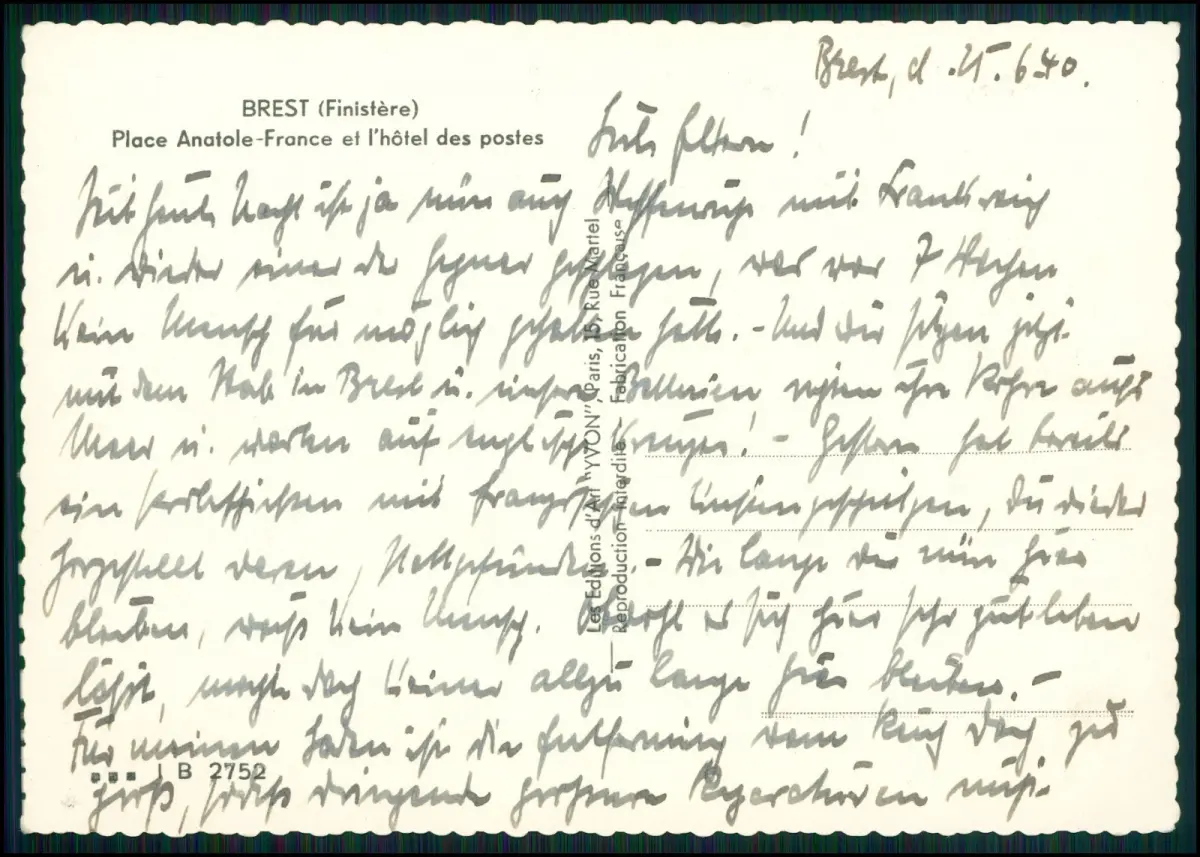 Brest, d. 25.6.40.
BREST (Finistère)
Place Anatole-France et l'hôtel des postes
Liebe Eltern!
Seit heute Nacht ist ja nun auch Waffenruhe mit Frankreich
u. wieder einer der Gegner geschlagen, was vor 7 Wochen
kein Mensch für möglich gehalten hätte. - Und wir sitzen jetzt
mit dem Stab in Brest u. unsere Batterien richten ihre Rohre aufs
Meer u. warten auf englische Kreuzer! - Gestern hat bereits
ein mit französischen Küstengeschützen, die wieder
hergestellt waren, stattgefunden. - Wie lange wir nun hier
bleiben, weiß kein Mensch. Obwohl es sich hier sehr gut leben
läßt, möchte doch keiner allzu lange hier bleiben. -
Für meinen Laden ist die Entfernung vom Reich doch zu
groß, sodaß dringende größere Reparaturen
Les Editions d'Art "YVON", Paris, 15, Rue Martel
Reproduction Interdite - Fabrication Française
I B 2752